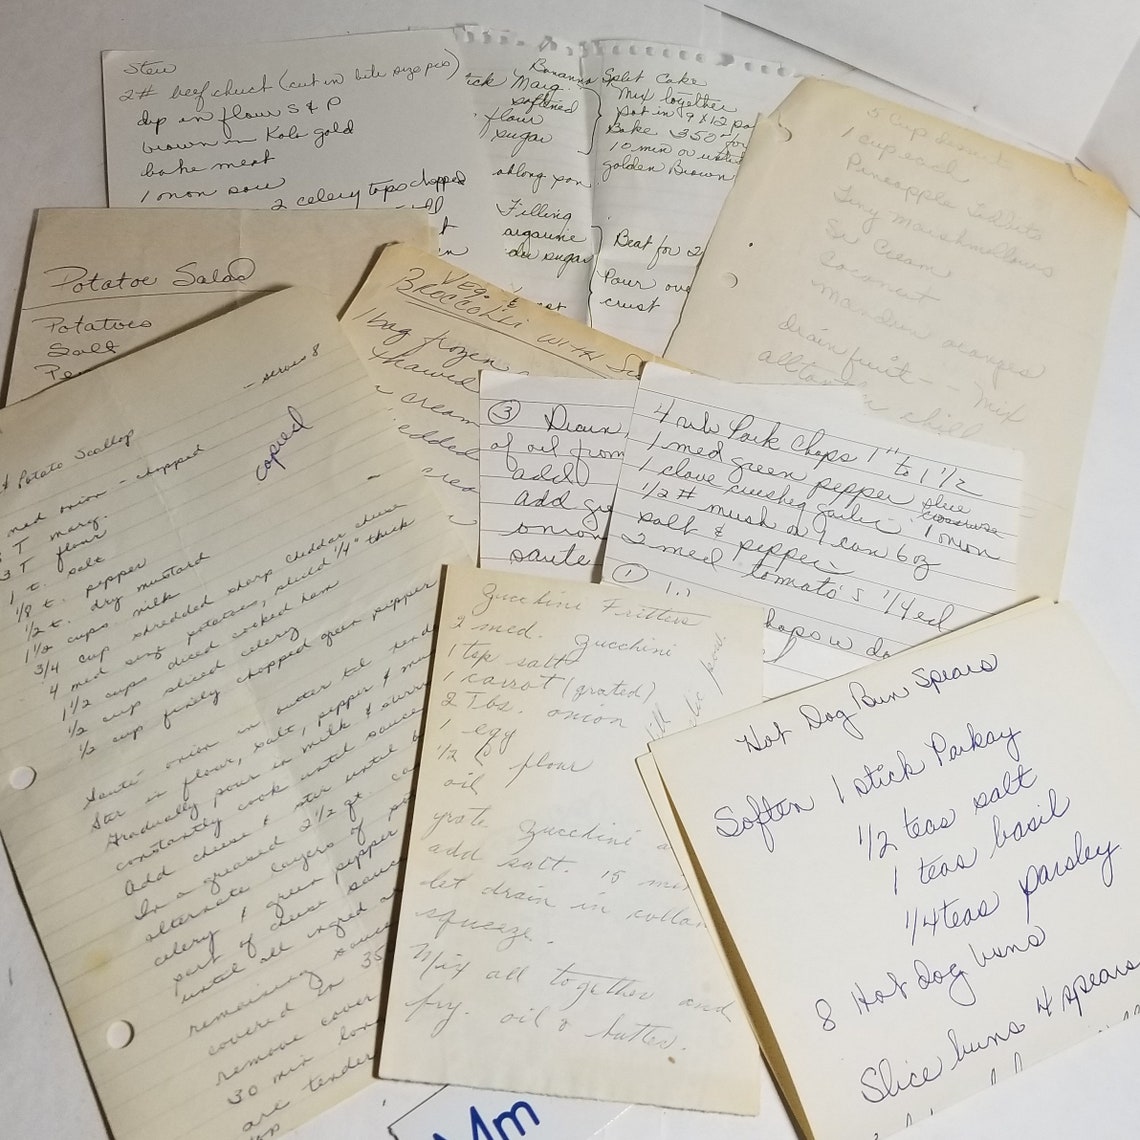 Stew
2# beef chuck (cut in bite size pcs)
dip in flour S & P
brown in Kolo gold
bake meat
1 onon
2 celery tops chopped
Bonanna Split Cake
tick Marg.
softned
flour
sugar
Mix together
put in 9 x 12 pa
Bake 350° for
10 min or
golden Brown
oblong pan
Filling
argarine
sugar
Beat for 2
Pour ove
crust
5 Cup dessert
1 cup each
Pineapple Tidbits
Tiny Marshmallows
Sr Cream
Coconut
Mandrin oranges
drain fruit -- Mix
chill
Potatoe Salad
Potatoes
Salt
Pe
Veg. &
Broccolli with
1 bag frozen
thawed
cream
edded
- serves 8
copied
Potato Scallop
med onion - chopped
T marg.
3 T flour
1 t. salt
1/8 t. pepper
1/2 t. dry mustard
1 1/2 cups milk
3/4 cup shredded sharp cheddar cheese
4 med size potatoes, sliced 1/4" thick
1 1/2 cups diced cooked ham
1/2 cup sliced celery
1/2 cup finely chopped green pepper
Sauté onion in butter til tend
Stir in flour, salt, pepper & mus
Gradually pour in milk & stirr
constantly cook until sauce
Add cheese & stir until
In a greased 2 1/2 qt. ca
alternate layers of po
celery & green pepper
part of cheese sauce
until all ingred a
remaining sauce
covered in 35
remove cover
30 min lon
are tender
③ Drain
of oil from
add
add gre
onion
saute
4 rib Pork Chops 1" to 1 1/2
1 med green pepper slice
crosswise
1 clove crushed garlic 1 onion
1/2 # mush or 1 can 6 oz
salt & pepper
2 med tomato's 1/4ed
①
chops w
Zucchini Fritters
2 med. zucchini
1 tsp salt
1 carrot (grated)
2 Tbs. onion
1 egg
1/2 C flour
oil
grate zucchini a
add salt. 15 min
let drain in collan
squeeze.
Mix all together and
fry. oil & butter.
Hot Dog Bun Spears
Soften 1 stick Parkay
1/2 teas salt
1 teas basil
1/4 teas parsley
8 Hot dog buns
Slice buns 4 spears
Mm